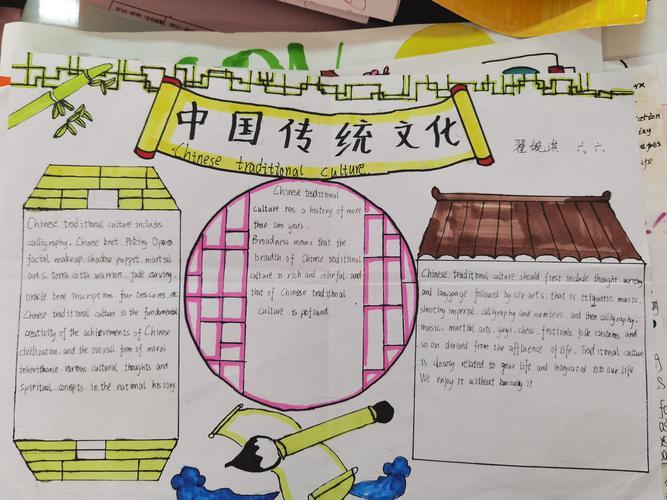 中国传统文化
Chinese traditional culture.
翟婉淇 六六
Chinese traditional culture includes
calligraphy. Chinese knot. Peking Opera
facial makeup. shadow puppet. martial
arts. terra cotta warriors. jade carving.
oracle bone inscriptions. four treasures. etc
Chinese traditional culture is the fundamental
creativity of the achievements of Chinese
civilization. and the overall form of moral
inheritance. various cultural thoughts and
spiritual concepts in the national history.
Chinese traditional
culture has a history of more
than years.
Broadness means that the
breadth of Chinese traditional
culture is rich and colorful. and
that of Chinese traditional
culture is profound
Chinese traditional culture should first include thought. writing
and language followed by six arts. that is etiquette. music.
shooting imperial. calligraphy and numbers. and then calligraphy.
music. martial arts. chess. festivals. folk customs and
so on derived from the affluence of life. Traditional culture
is closely related to your life and integrated into our life
We enjoy it without it